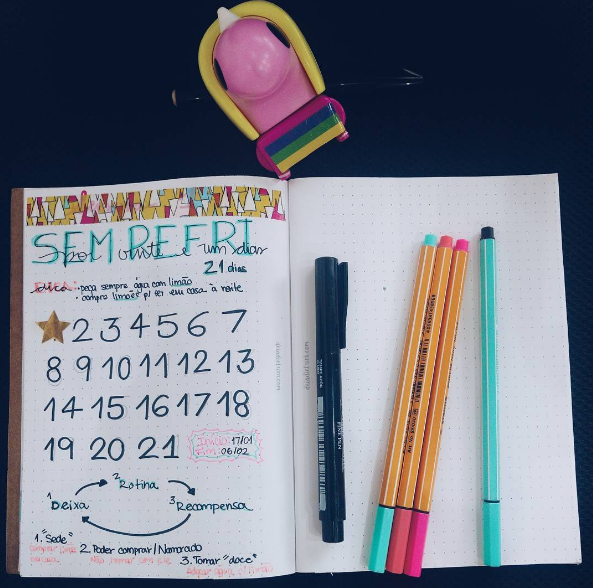 SEM REFRI
por vinte e um dias
21 dias
DICA: • peça sempre água com limão
• compre limões p/ ter em casa à noite
2 3 4 5 6 7
8 9 10 11 12 13
14 15 16 17 18
19 20 21
Início: 17/01
Fim: 06/02
2 Rotina
1 Deixa
3 Recompensa
1. "Sede"
2. Poder comprar/Namorado
3. Tomar "doce"